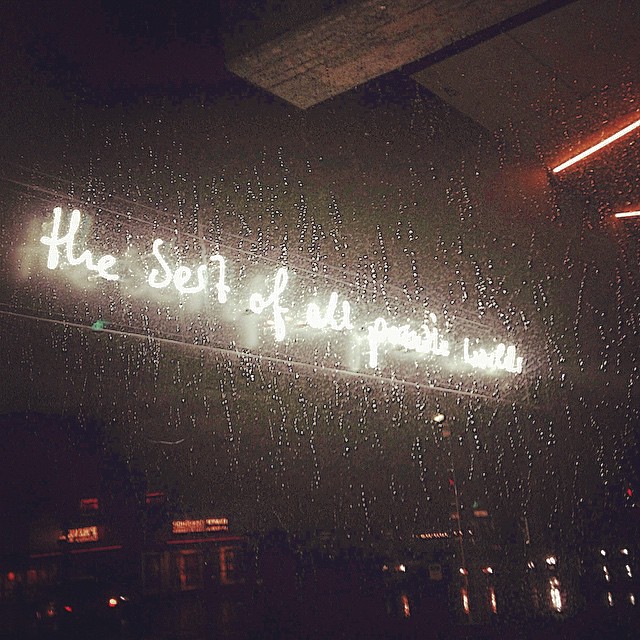 the best of all possible worlds